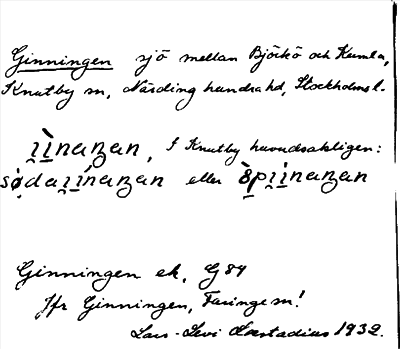 Ginningen sjö mellan Björkö och Kumla,
Knutby sn, Närding hundra hd, Stockholms l.
i̯ìnaŋan, I Knutby huvudsakligen:
sø̀dai̯ínaŋan eller ö̀pi̯ínaŋan
Ginningen ek, G 84
Jfr Ginningen, Faringe sn!
Lars-Levi Læstadius 1932.